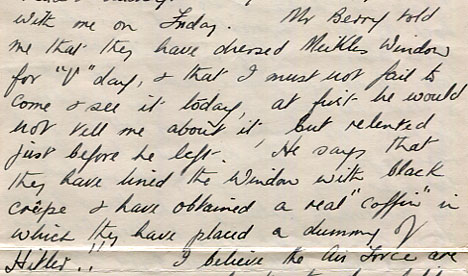 with me on Friday. Mr Berry told
me that they have dressed Meikles Window
for "V" day, & that I must not fail to
come & see it today, at first he would
not tell me about it, but relented
just before he left. He says that
they have lined the Window with black
crêpe & have obtained a real "coffin" in
which they have placed a dummy of
Hitler!! I believe the Air Force are